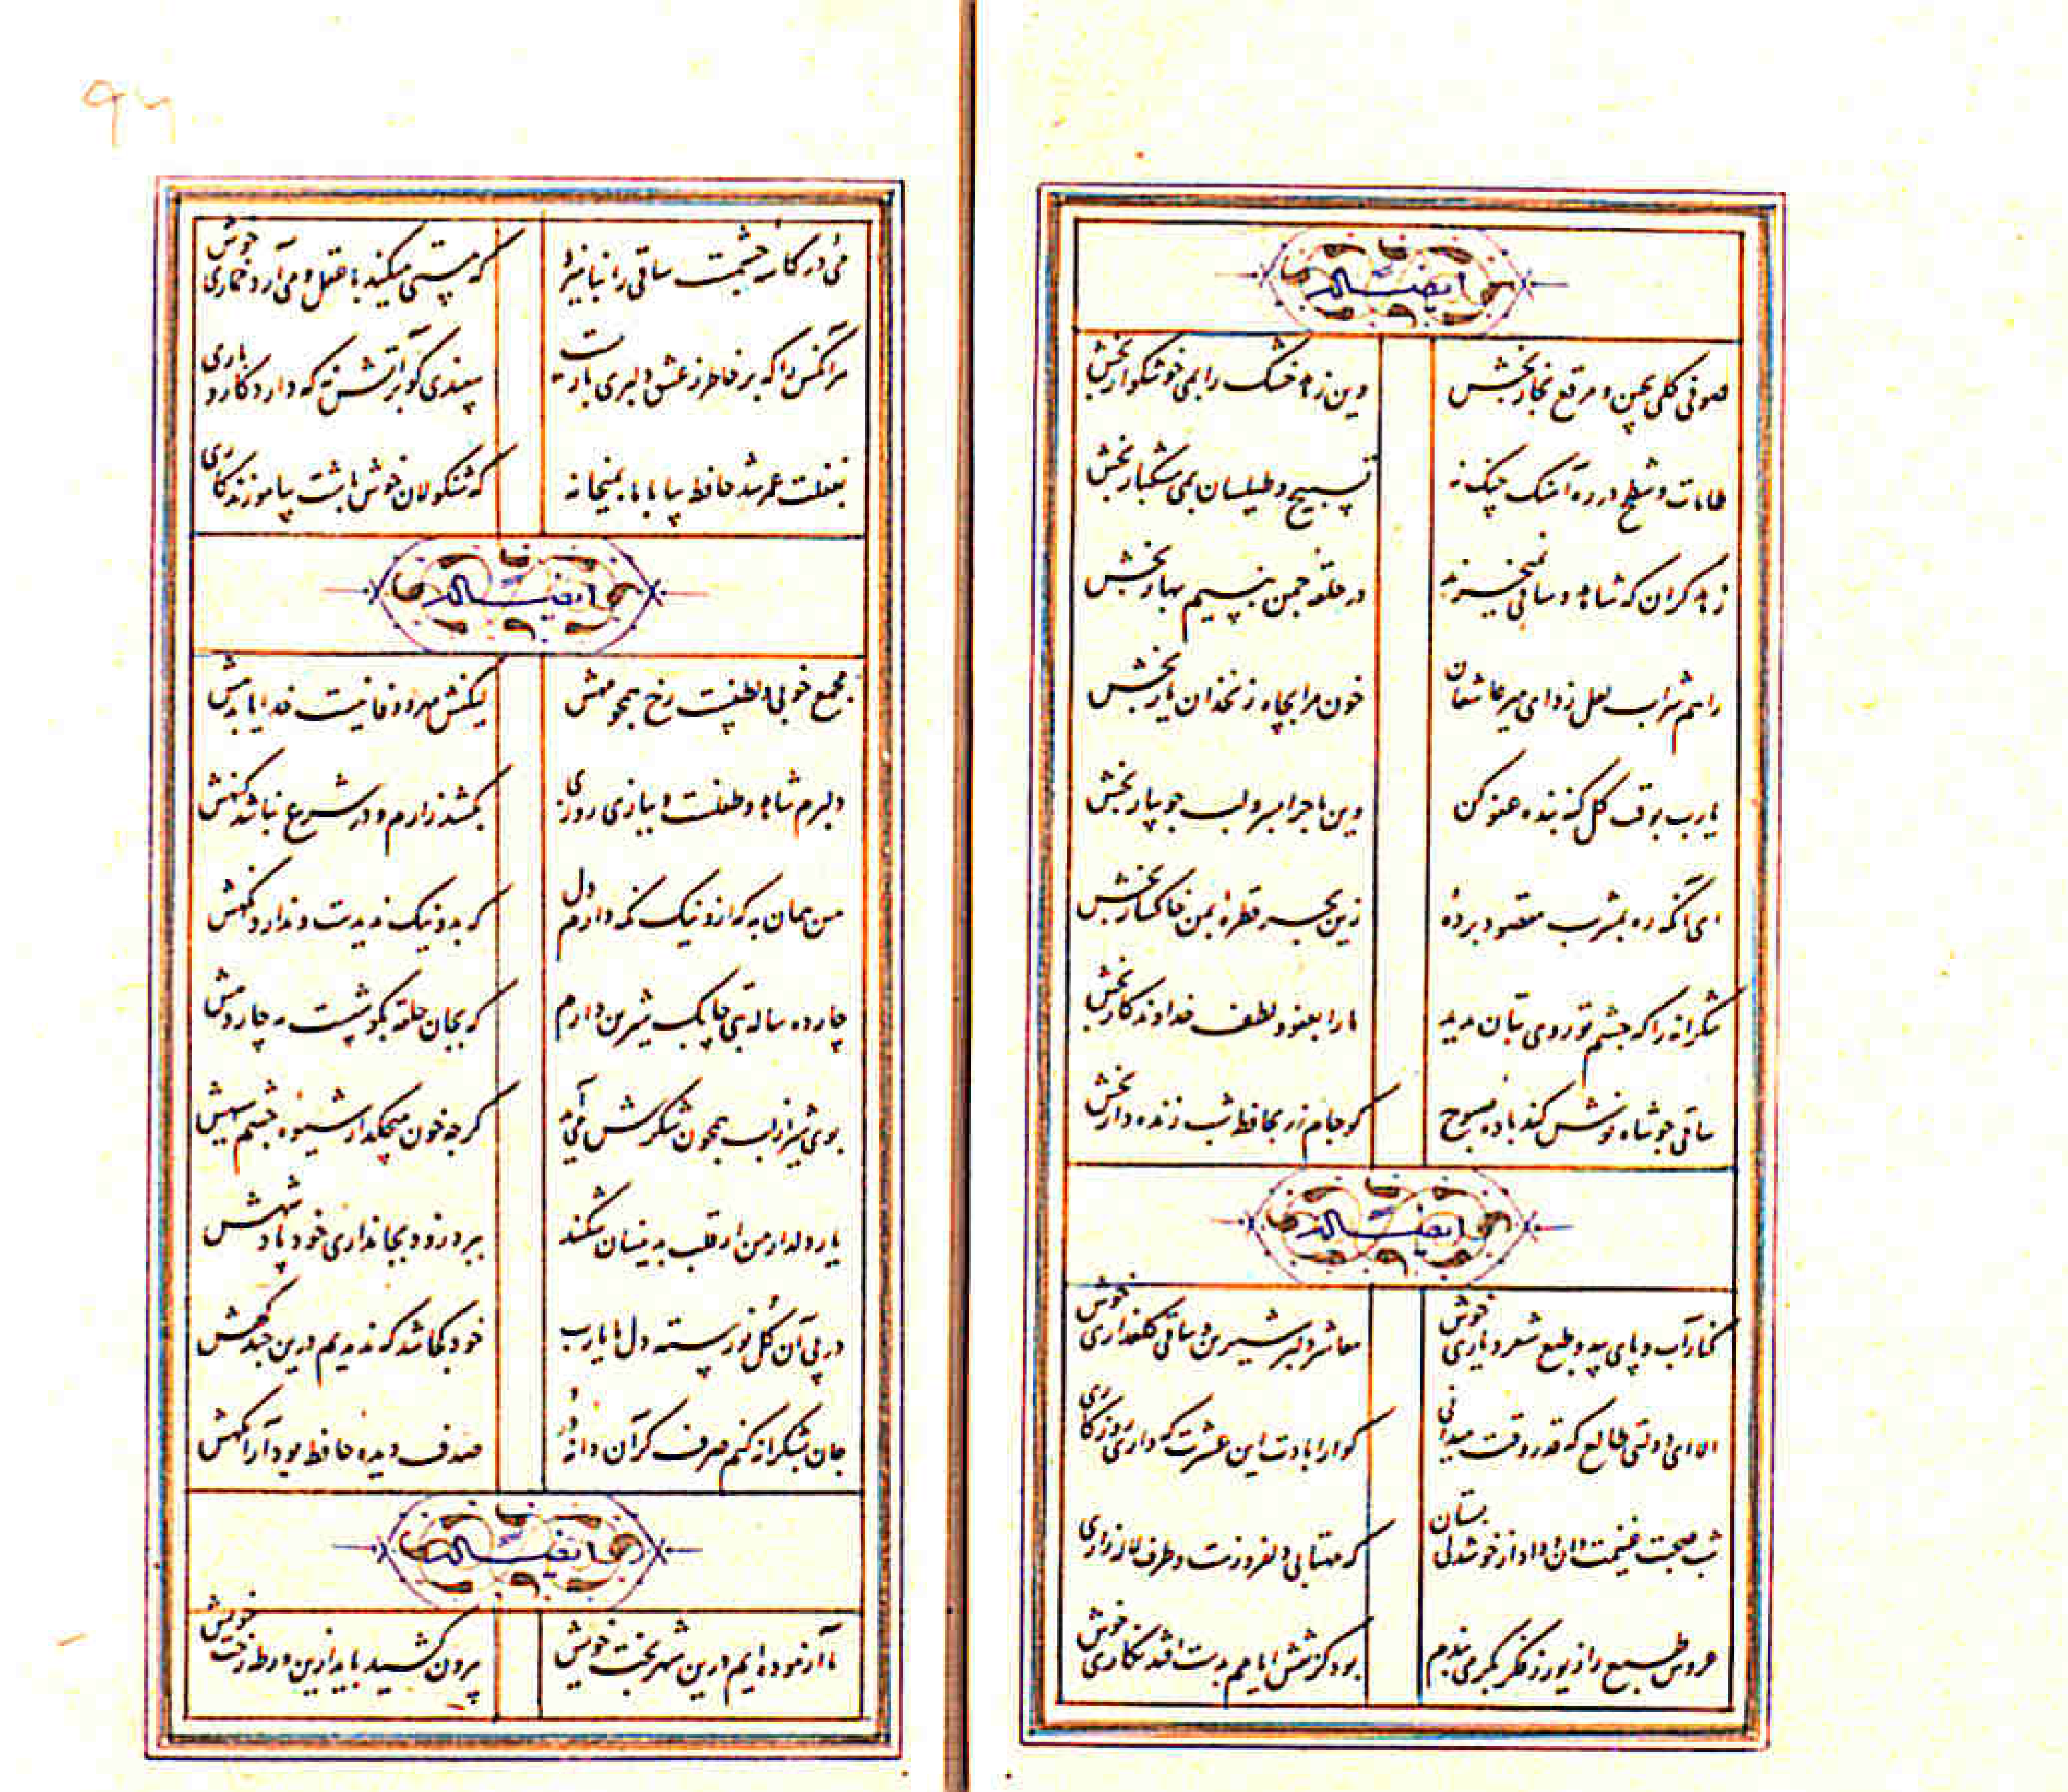 ایضاً له
صوفی گلی بچین و مرقع بخار بخش
وین زهد خشک را بمی خوشگوار بخش
طامات و شطح در ره آهنگ چنگ نه
تسبیح و طیلسان بمی مشکبار بخش
زهد گران که شاهد و ساقی نمیخرند
در حلقه چمن بنسیم بهار بخش
راهم شراب لعل زد ای میر عاشقان
خون مرا بچاه زنخدان یار بخش
یارب بوقت گل گنه بنده عفو کن
وین ماجرا بسرو لب جویبار بخش
ای آنکه ره بمشرب مقصود بردهٔ
زین بحر قطرهٔ بمن خاکسار بخش
شکرانه را که چشم تو روی بتان ندید
ما را بعفو و لطف خداوندکار بخش
ساقی چو شاه نوش کند باده صبوح
گو جام زر بحافظ شب زنده دار بخش
ایضاً له
کنار آب و پای بید و طبع شعر و یاری خوش
معاشر دلبر شیرین و ساقی گلعذاری خوش
الا ای دولتی طالع که قدر وقت میدانی
گوارا بادت این عشرت که داری روزگاری
شب صحبت غنیمت دان و داد از خوشدلی بستان
که مهتابی دلفروزست و طرف لاله زاری
عروس طبع را زیور ز فکر بکر می بندم
بود کز نقش ایامم بدست افتد نگاری خوش
۹۶
می در کاسه چشمت ساقی را بنامیزد
که مستی میکند با عقل و می آرد خماری خوش
هر آنکس را که بر خاطر ز عشق دلبری باریست
سپندی گو بر آتش نه که دارد کار و باری
بغفلت عمر شد حافظ بیا با ما بمیخانه
که شنگولان خوش باشت بیاموزند کاری
ایضاً له
مجمع خوبی و لطفست رخ همچو مهش
لیکنش مهر و وفا نیست خدایا بدهش
دلبرم شاهد و طفلست و ببازی روزی
بکشد زارم و در شرع نباشد گنهش
من همان به که ازو نیک نگه دارم دل
که بد و نیک ندیدست و ندارد نگهش
چارده ساله بتی چابک شیرین دارم
که بجان حلقه بگوشست مه چاردهش
بوی شیر از لب همچون شکرش می آید
گرچه خون میچکد از شیوه چشم سیهش
یار دلدار من ار قلب بدینسان شکند
ببرد زود بجانداری خود پادشهش
در پی آن گل نورسته دل ما یارب
خود کجا شد که ندیدیم درین چند گهش
جان بشکرانه کنم صرف گر آن دانه در
صدف دیده حافظ بود آرامگهش
ایضاً له
ما آزموده ایم درین شهر بخت خویش
بیرون کشید باید ازین ورطه رخت خویش